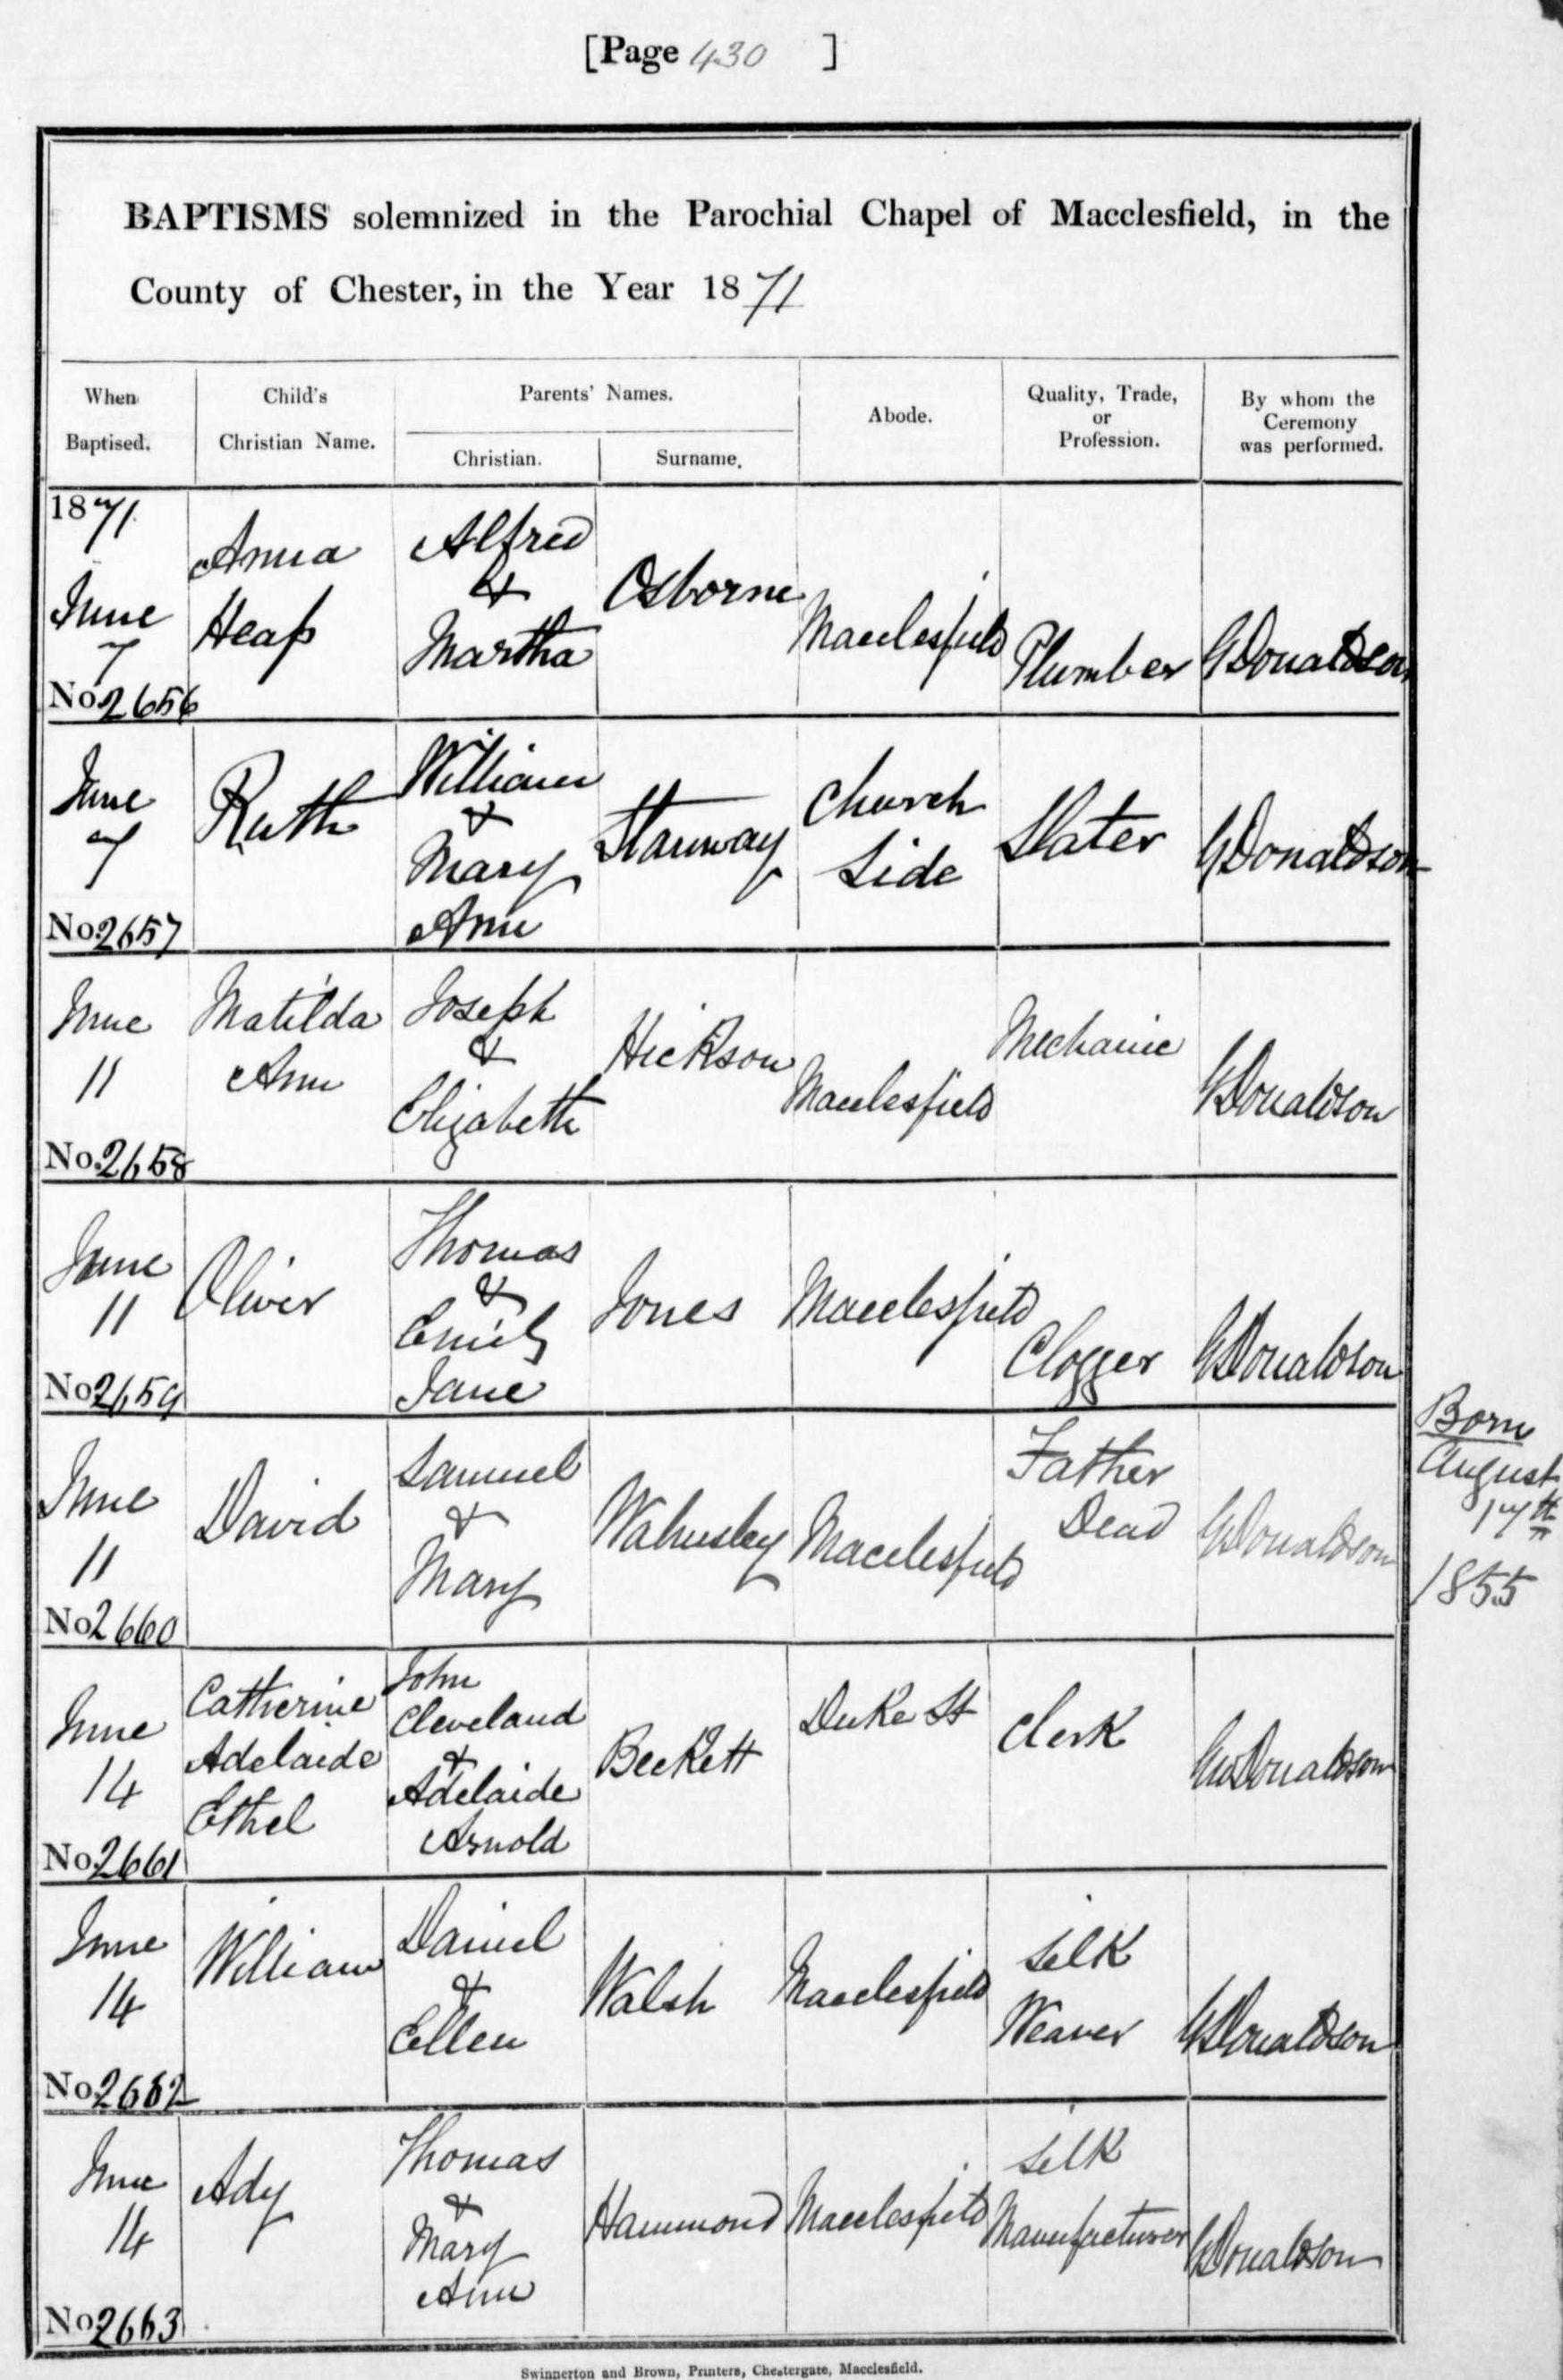 [Page 430 ]
BAPTISMS solemnized in the Parochial Chapel of Macclesfield, in the
County of Chester, in the Year 1871
When Baptised.
Child's Christian Name.
Parents' Names.
Christian.
Surname.
Abode.
Quality, Trade, or Profession.
By whom the Ceremony was performed.
1871
June
7
No. 2656
Anna
Heap
Alfred
&
Martha
Osborne
Macclesfield
Plumber
GDonaldson
June
7
No. 2657
Ruth
William
&
Mary
Ann
Stanway
Church
Side
Slater
GDonaldson
June
11
No. 2658
Matilda
Ann
Joseph
&
Elizabeth
Hickson
Macclesfield
Mechanic
GDonaldson
June
11
No. 2659
Oliver
Thomas
&
Emily
Jane
Jones
Macclesfield
Clogger
GDonaldson
June
11
No. 2660
David
Samuel
&
Mary
Walmsley
Macclesfield
Father
Dead
GDonaldson
Born
August
17th
1855
June
14
No. 2661
Catherine
Adelaide
Ethel
John
Cleveland
&
Adelaide
Arnold
Beckett
Duke St
Clerk
GwDonaldson
June
14
No. 2662
William
Daniel
&
Ellen
Walsh
Macclesfield
Silk
Weaver
GDonaldson
June
14
No. 2663
Ady
Thomas
&
Mary
Ann
Hammond
Macclesfield
Silk
Manufacturer
GDonaldson
Swinnerton and Brown, Printers, Chestergate, Macclesfield.